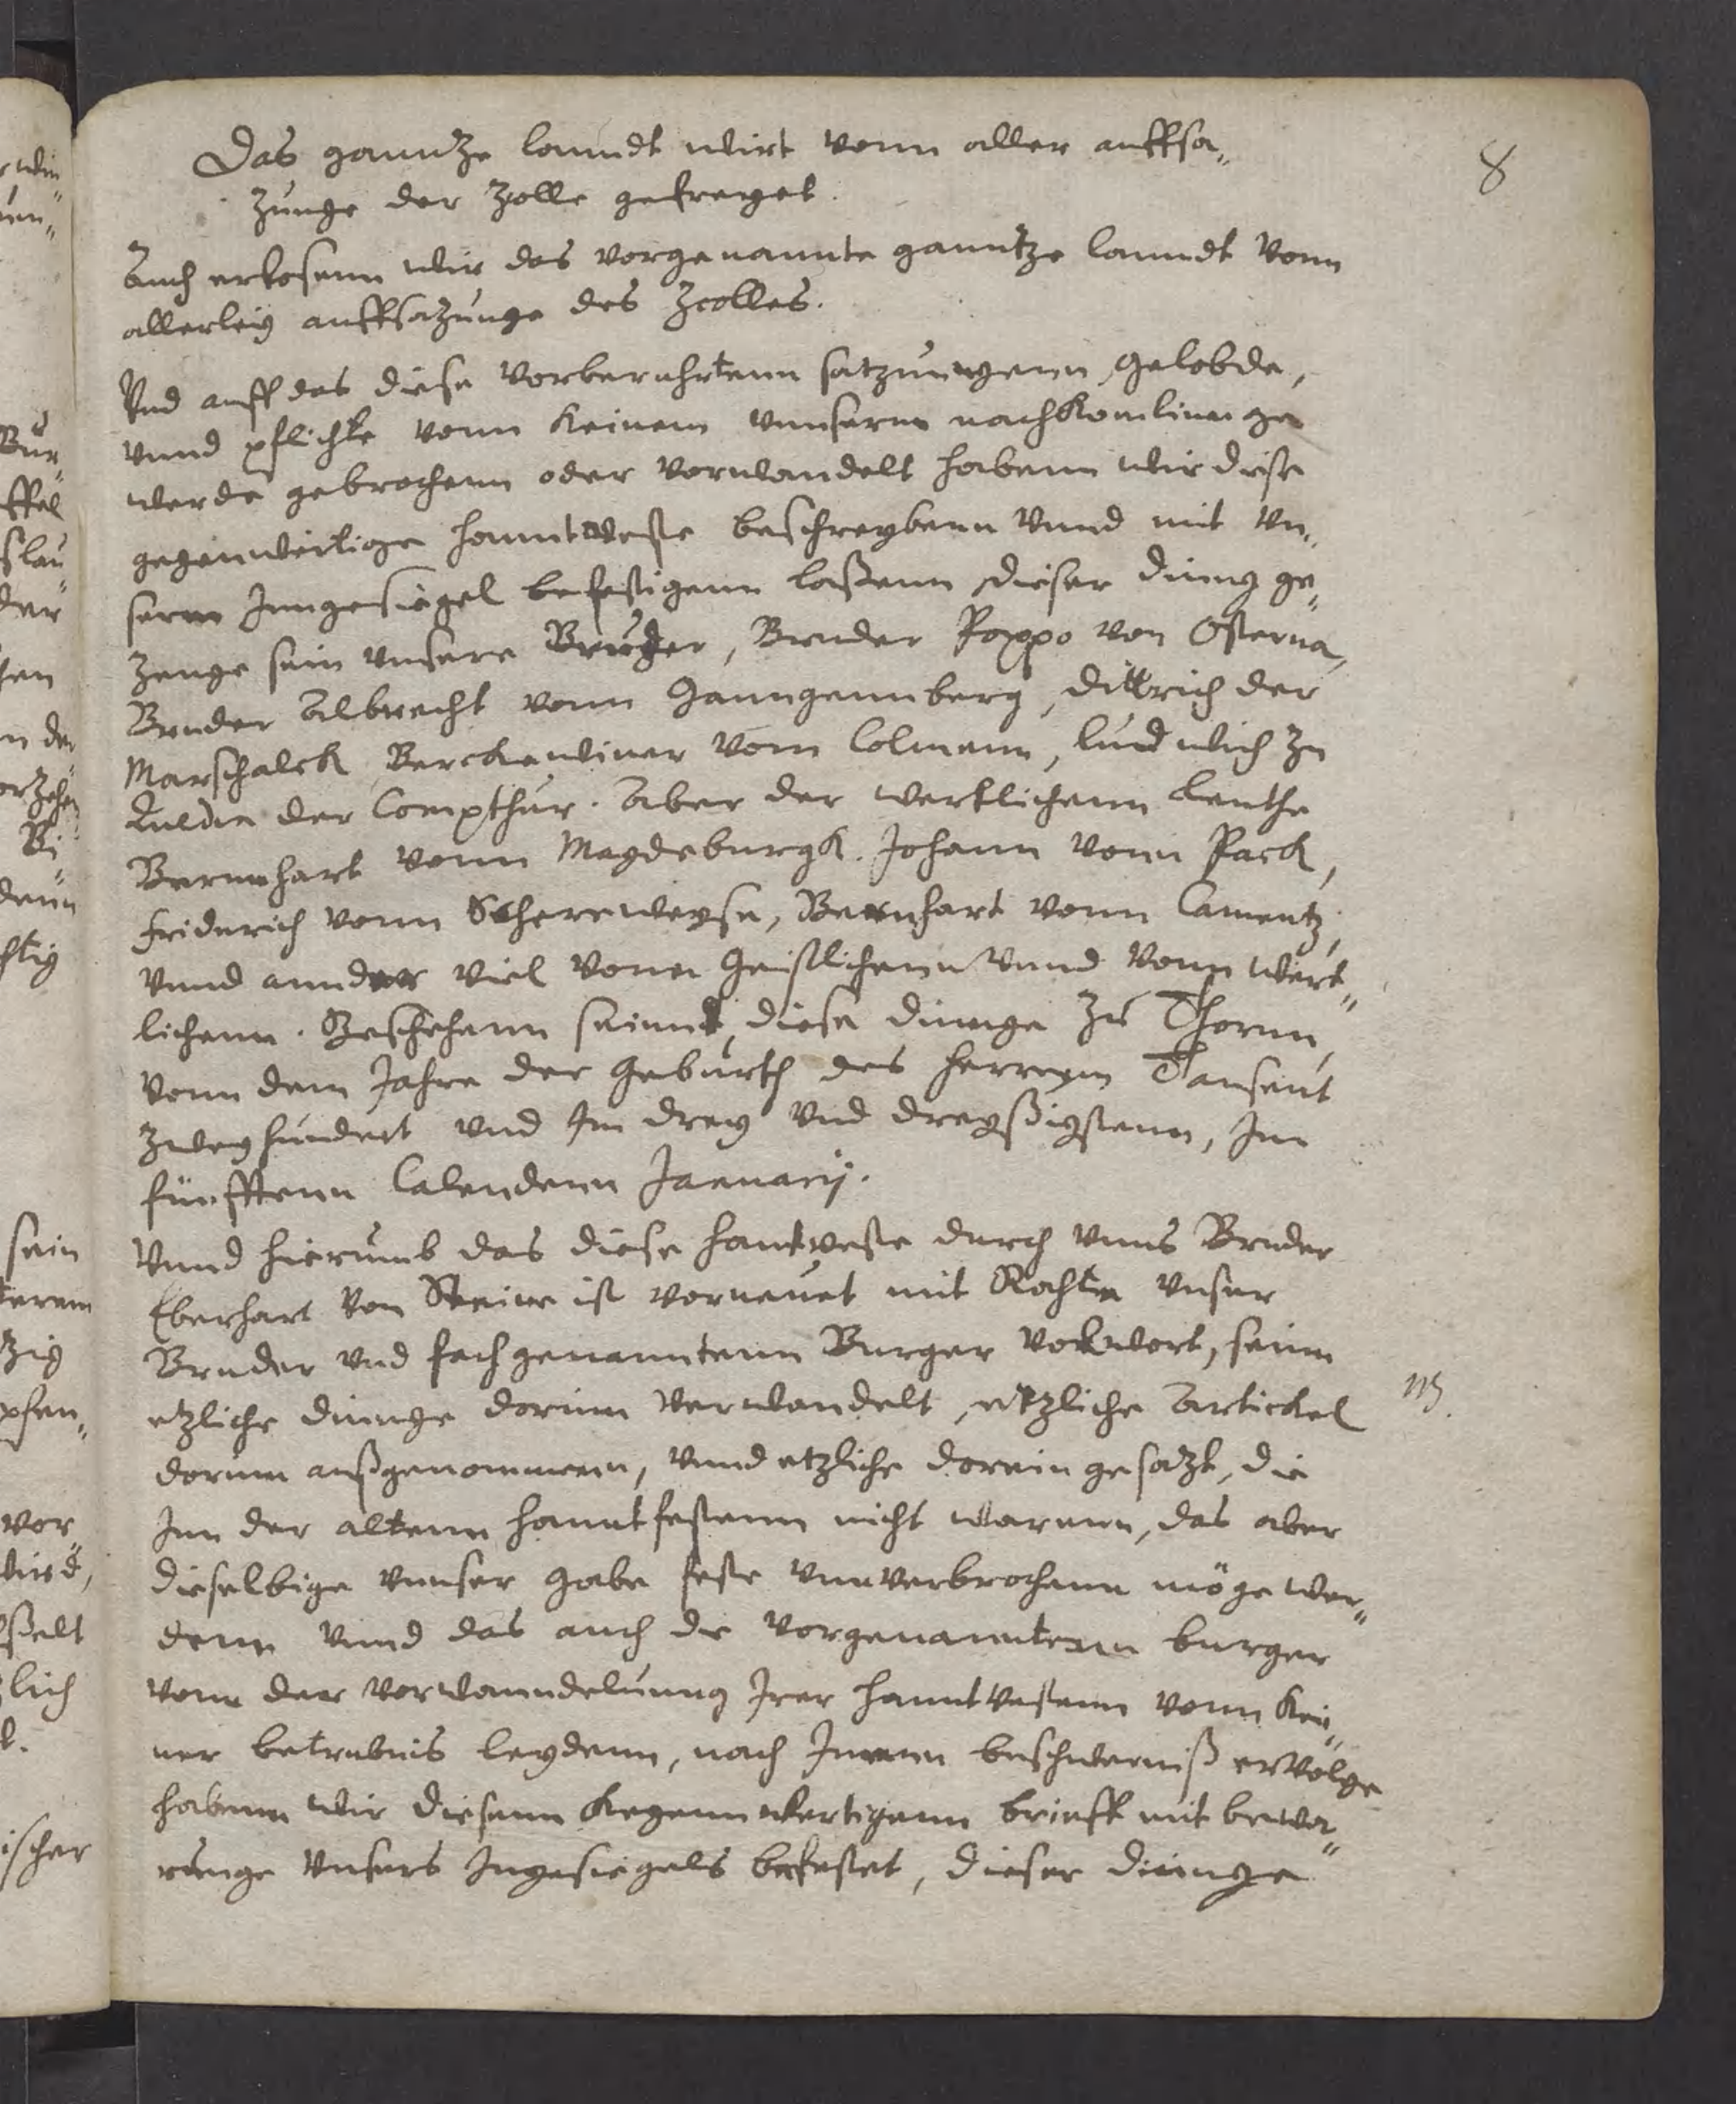 8
Das ganntze lanndt wirt vonn aller auffsa„
zunge der Zolle gefreyet.
Auch erlosenn wir das vorgenannte ganntze lanndt vonn
allerley auffsazunge des Zcolles.
Vnd auff das diese vorberuhrtenn satzungenn, gelobde,
vnnd pflichte vonn keinem vnnserm nachkomlinge
werde gebrochenn oder vorwandelt habenn wir diese
gegenwertige hanntveste beschreybenn vnnd mit vn„
serm Inngesiegel befestigenn laßenn, dieser dinng ge„
zeuge sein vnsere Bruder, Bruder Poppo von Osterna,
Bruder Albrecht vonn Ganngennberg, Dittrich der
Marschalck, Berckewiner vom Colmenn, Ludwich zu
Quedin der Compthur. Aber der wertlichenn leuthe
Bernnhart vonn Magdeburgk. Johann vonn Pack,
Friderich vonn Scherewegse, Bernhart vonn Camentz,
vnnd annder viel vonn Geistlichenn vnnd vonn wert„
lichenn. Geschehenn seinndt, diese dinnge zu Thornn,
vonn dem Jahre der geburth des herrenn Tausent
zweyhundert vnd Im drey vnd dreyßigstenn, Inn
fünfftenn Calendenn Januarij.
Vnnd hierumb das diese hantveste durch vnns Bruder
Eberhart von Seine ist vorneuet mit Rathe vnser
Bruder vnd fachgenanntenn Burger volwort, seinn
etzliche dinnge dorinn verwandelt, etzliche Artickel
NB.
dorinn außgenommenn, vnnd etzliche dorein gesatzt, die
Inn der altenn hanntfestenn nicht warenn, das aber
dieselbige vnnser gabe feste vnnverbrochenn möge wer„
denn vnnd das auch die vorgenanntenn burger
vonn der vorwanndelunng Irer hanntvestenn vonn kei„
ner betrubnis leydenn, nach Innenn beschwerniß ervolge
habenn wir diesenn kegennwertigenn brieff mit bewa„
runge vnsers Ingesiegels befestet, dieser dinnge